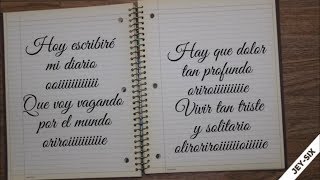 Hoy escribiré
mi diario
ooiiiiiiiiiii
Que voy vagando
por el mundo
oriroiiiiiiiiiie
Hay que dolor
tan profundo
oriroiiiiiiiiiie
Vivir tan triste
y solitario
oliroriroiiiiiioiiiiie
JEY-SIX